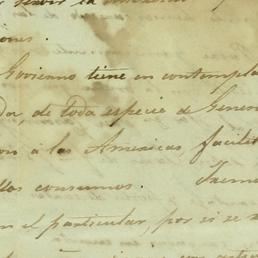 servir la
ones.
Govierno tiene en contempla
da, de toda especie de Gener
on á las Americas, facilit
los consumos.
n el particular, por si se